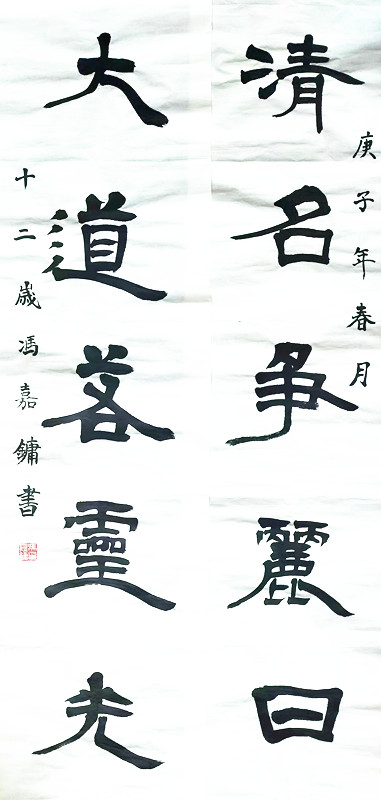 庚子年春月
清名爭麗日
大道荅靈光
十二歲馮嘉鏞書